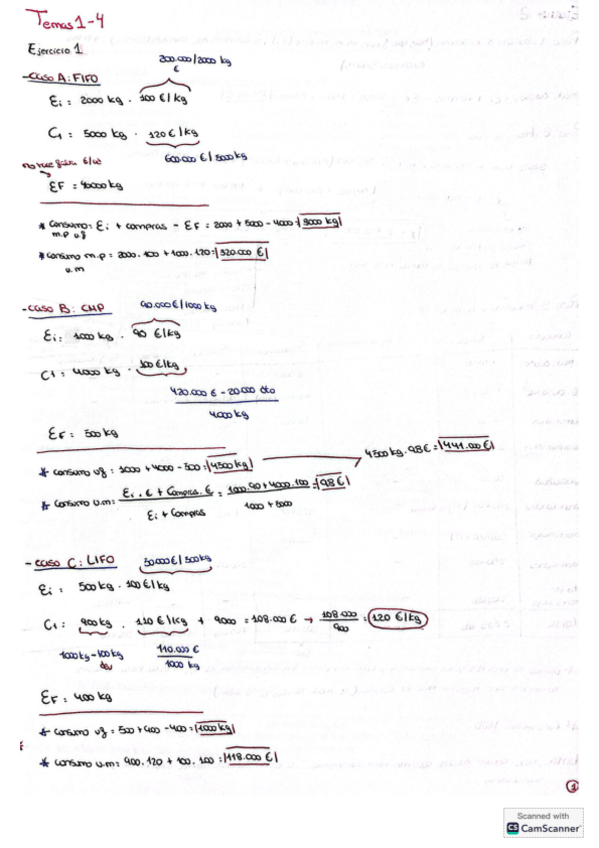 Temas 1-4
Ejercicio 1
200.000/2000 kg
€
- Caso A: FIFO
Ei = 2000 kg · 100 €/kg
C1 = 5000 kg · 120 €/kg
600.000 €/5000 kg
EF = 4000 kg
* Consumo = Ei + compras - EF = 2000 + 5000 - 4000 = 3000 kg
m.p u.f
* consumo m.p = 2000 · 100 + 1000 · 120 = 320.000 €
u.m
- Caso B: CMP
90.000 €/1000 kg
Ei = 1000 kg · 90 €/kg
C1 = 4000 kg · 100 €/kg
420.000 € - 20.000 dto
4000 kg
EF = 500 kg
* consumo uf = 1000 + 4000 - 500 = 4500 kg
4500 kg · 98 € = 441.000 €
* Consumo u.m = Ei · € + Compra · € = 1000·90 + 4000·100 = 98 €
Ei + Compras
- Caso C: LIFO
50.000 €/500 kg
Ei = 500 kg · 100 €/kg
C1 = 900 kg · 110 €/kg + 9000 = 108.000 € → 108.000 = 120 €/kg
900
1000 kg - 100 kg
110.000 €
1000 kg
EF = 400 kg
* Consumo uf = 500 + 900 - 400 = 1000 kg
* Consumo u.m = 900 · 120 + 100 · 100 = 118.000 €
1
Scanned with
CS CamScanner